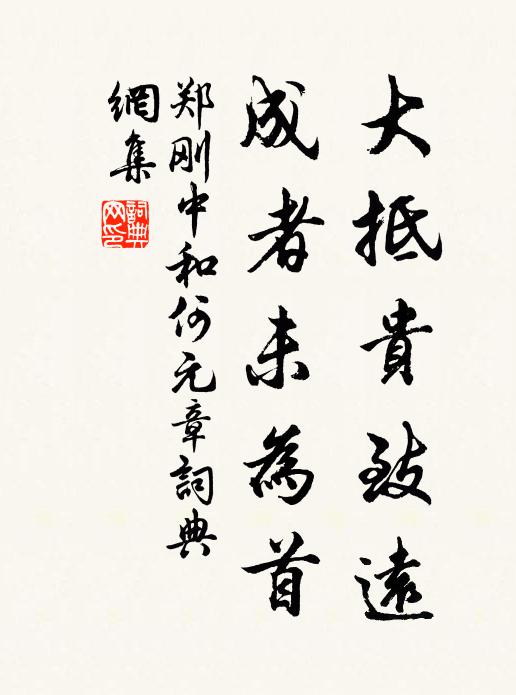 大抵貴致遠
成者未為首
郑刚中和何元章詞典
網集
詞典
网印